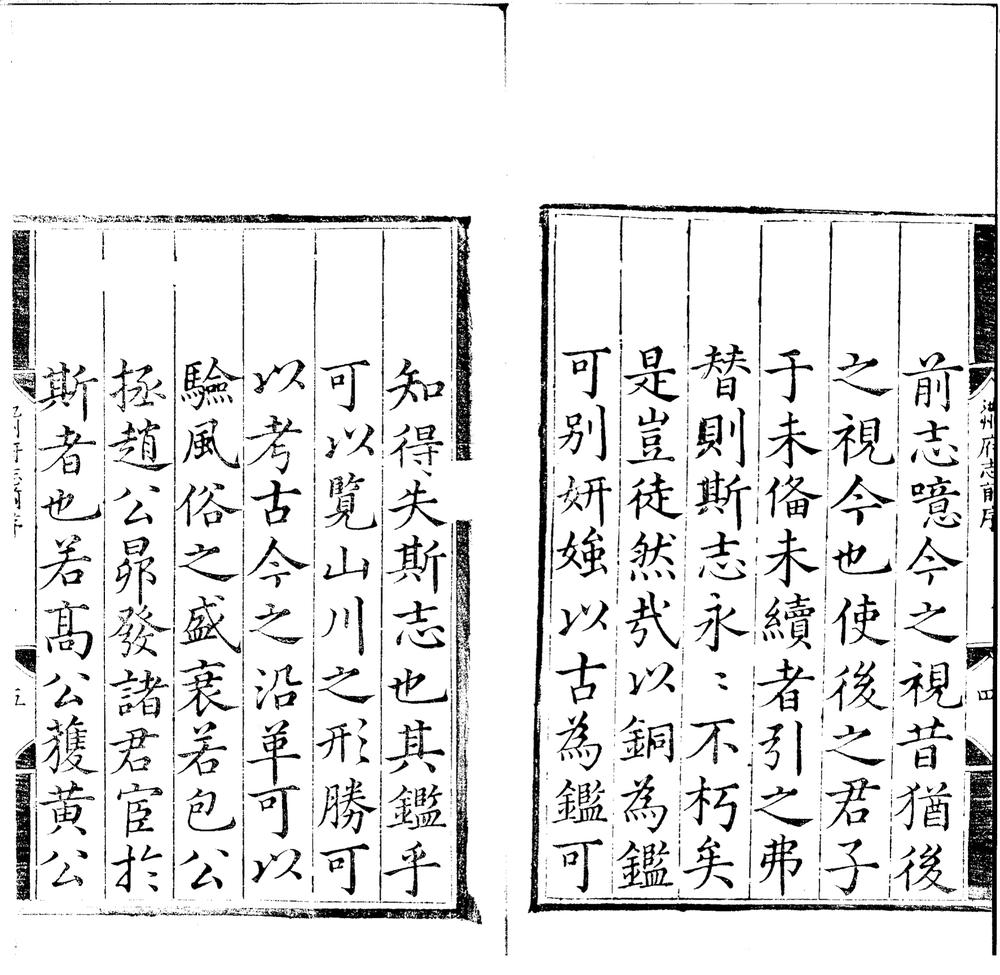 池州府志前序
四
前志噫今之視昔猶後
之視今也使後之君子
于未俻未續者引之弗
替則斯志永〻不朽矣
是豈徒然㢤以銅為鑑
可别妍媸以古為鑑可
知得失斯志也其鑑乎
可以覧山川之形勝可
以考古今之沿革可以
驗風俗之盛衰若包公
拯趙公昴發諸君宦於
斯者也若髙公蒦黄公
五